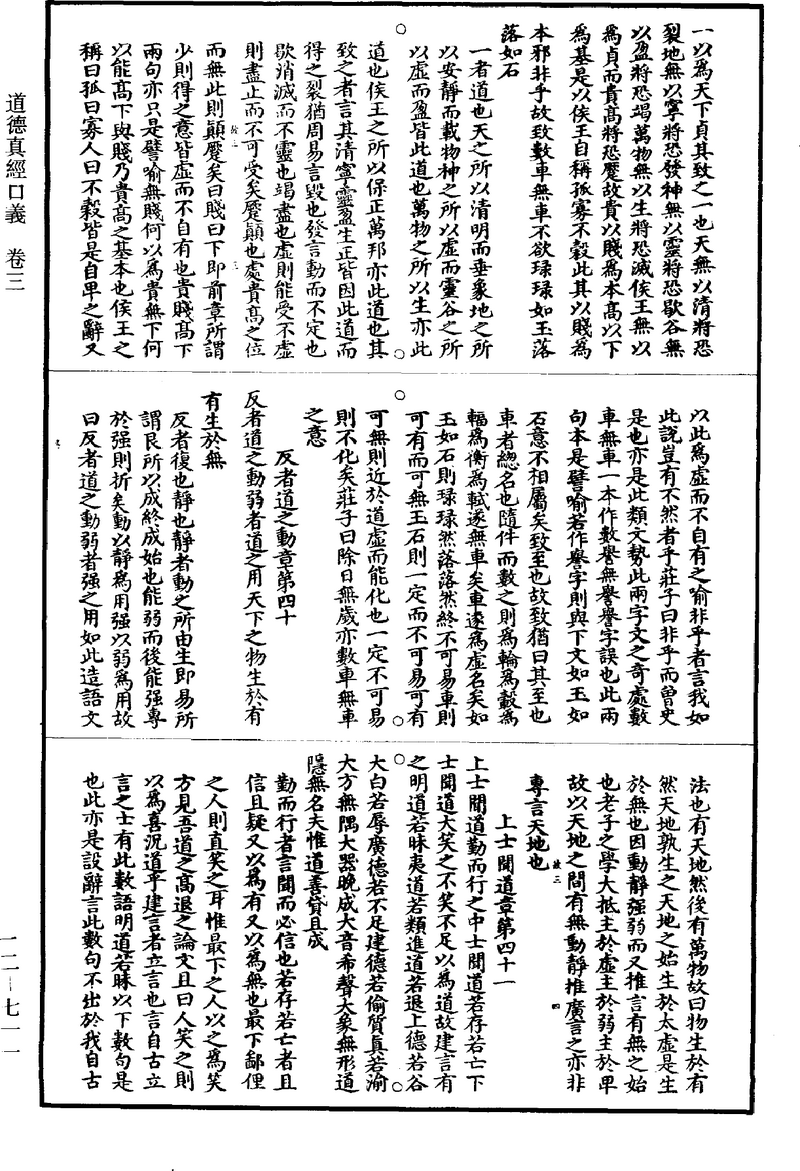 道德真經口義　卷三
一以為天下貞其致之一也天無以清將恐
裂地無以寧將恐發神無以靈將恐歇谷無
以盈將恐竭萬物無以生將恐滅侯王無以
為貞而貴高將恐蹷故貴以賤為本高以下
為基是以侯王自稱孤寡不穀此其以賤為
本邪非乎故致數車無車不欲琭琭如玉落
落如石
一者道也天之所以清明而垂象地之所
以安靜而載物神之所以虛而靈谷之所
以虛而盈皆此道也萬物之所以生亦此
道也侯王之所以保正萬邦亦此道也其
致之者言其清寧靈盈生正皆因此道而
得之裂猶周易言毀也發言動而不定也
歇消滅而不靈也竭盡也虛則能受不虛
則盡止而不可受矣蹷顛也處貴高之位
而無此則顛蹷矣曰賤曰下即前章所謂
少則得之意皆虛而不自有也貴賤高下
兩句亦只是譬喻無賤何以為貴無下何
以能高下與賤乃貴高之基本也侯王之
稱曰孤曰寡人曰不穀皆是自卑之辭又
以此為虛而不自有之喻非乎者言我如
此說豈有不然者乎莊子曰非乎而曾史
是也亦是此類文勢此兩字文之奇處數
車無車一本作數譽無譽譽字誤也此兩
句本是譬喻若作譽字則與下文如玉如
石意不相屬矣致至也故致猶曰其至也
車者總名也隨件而數之則為輪為轂為
輻為衡為軾遂無車矣車遂為虛名矣如
玉如石則琭琭然落落然終不可易車則
可有而可無玉石則一定而不可易可有
可無則近於道虛而能化也一定不可易
則不化矣莊子曰除日無歲亦數車無車
之意
反者道之動章第四十
反者道之動弱者道之用天下之物生於有
有生於無
反者復也靜也靜者動之所由生即易所
謂艮所以成終成始也能弱而後能強專
於強則折矣動以靜為用強以弱為用故
曰反者道之動弱者強之用如此造語文
法也有天地然後有萬物故曰物生於有
然天地孰生之天地之始生於太虛是生
於無也因動靜強弱而又推言有無之始
也老子之學大抵主於虛主於弱主於卑
故以天地之間有無動靜推廣言之亦非
專言天地也
上士聞道章第四十一
上士聞道勤而行之中士聞道若存若亡下
士聞道大笑之不笑不足以為道故建言有
之明道若昧夷道若類進道若退上德若谷
大白若辱廣德若不足建德若偷質真若渝
大方無隅大器晚成大音希聲大象無形道
隱無名夫惟道善貸且成
勤而行者言聞而必信也若存若亡者且
信且疑又以為有又以為無也最下鄙俚
之人則直笑之耳惟最下之人以之為笑
方見吾道之高退之論文且曰人笑之則
以為喜況道乎建言者立言也言自古立
言之士有此數語明道若昧以下數句是
也此亦是設辭言此數句不出於我自古
一二—七一一